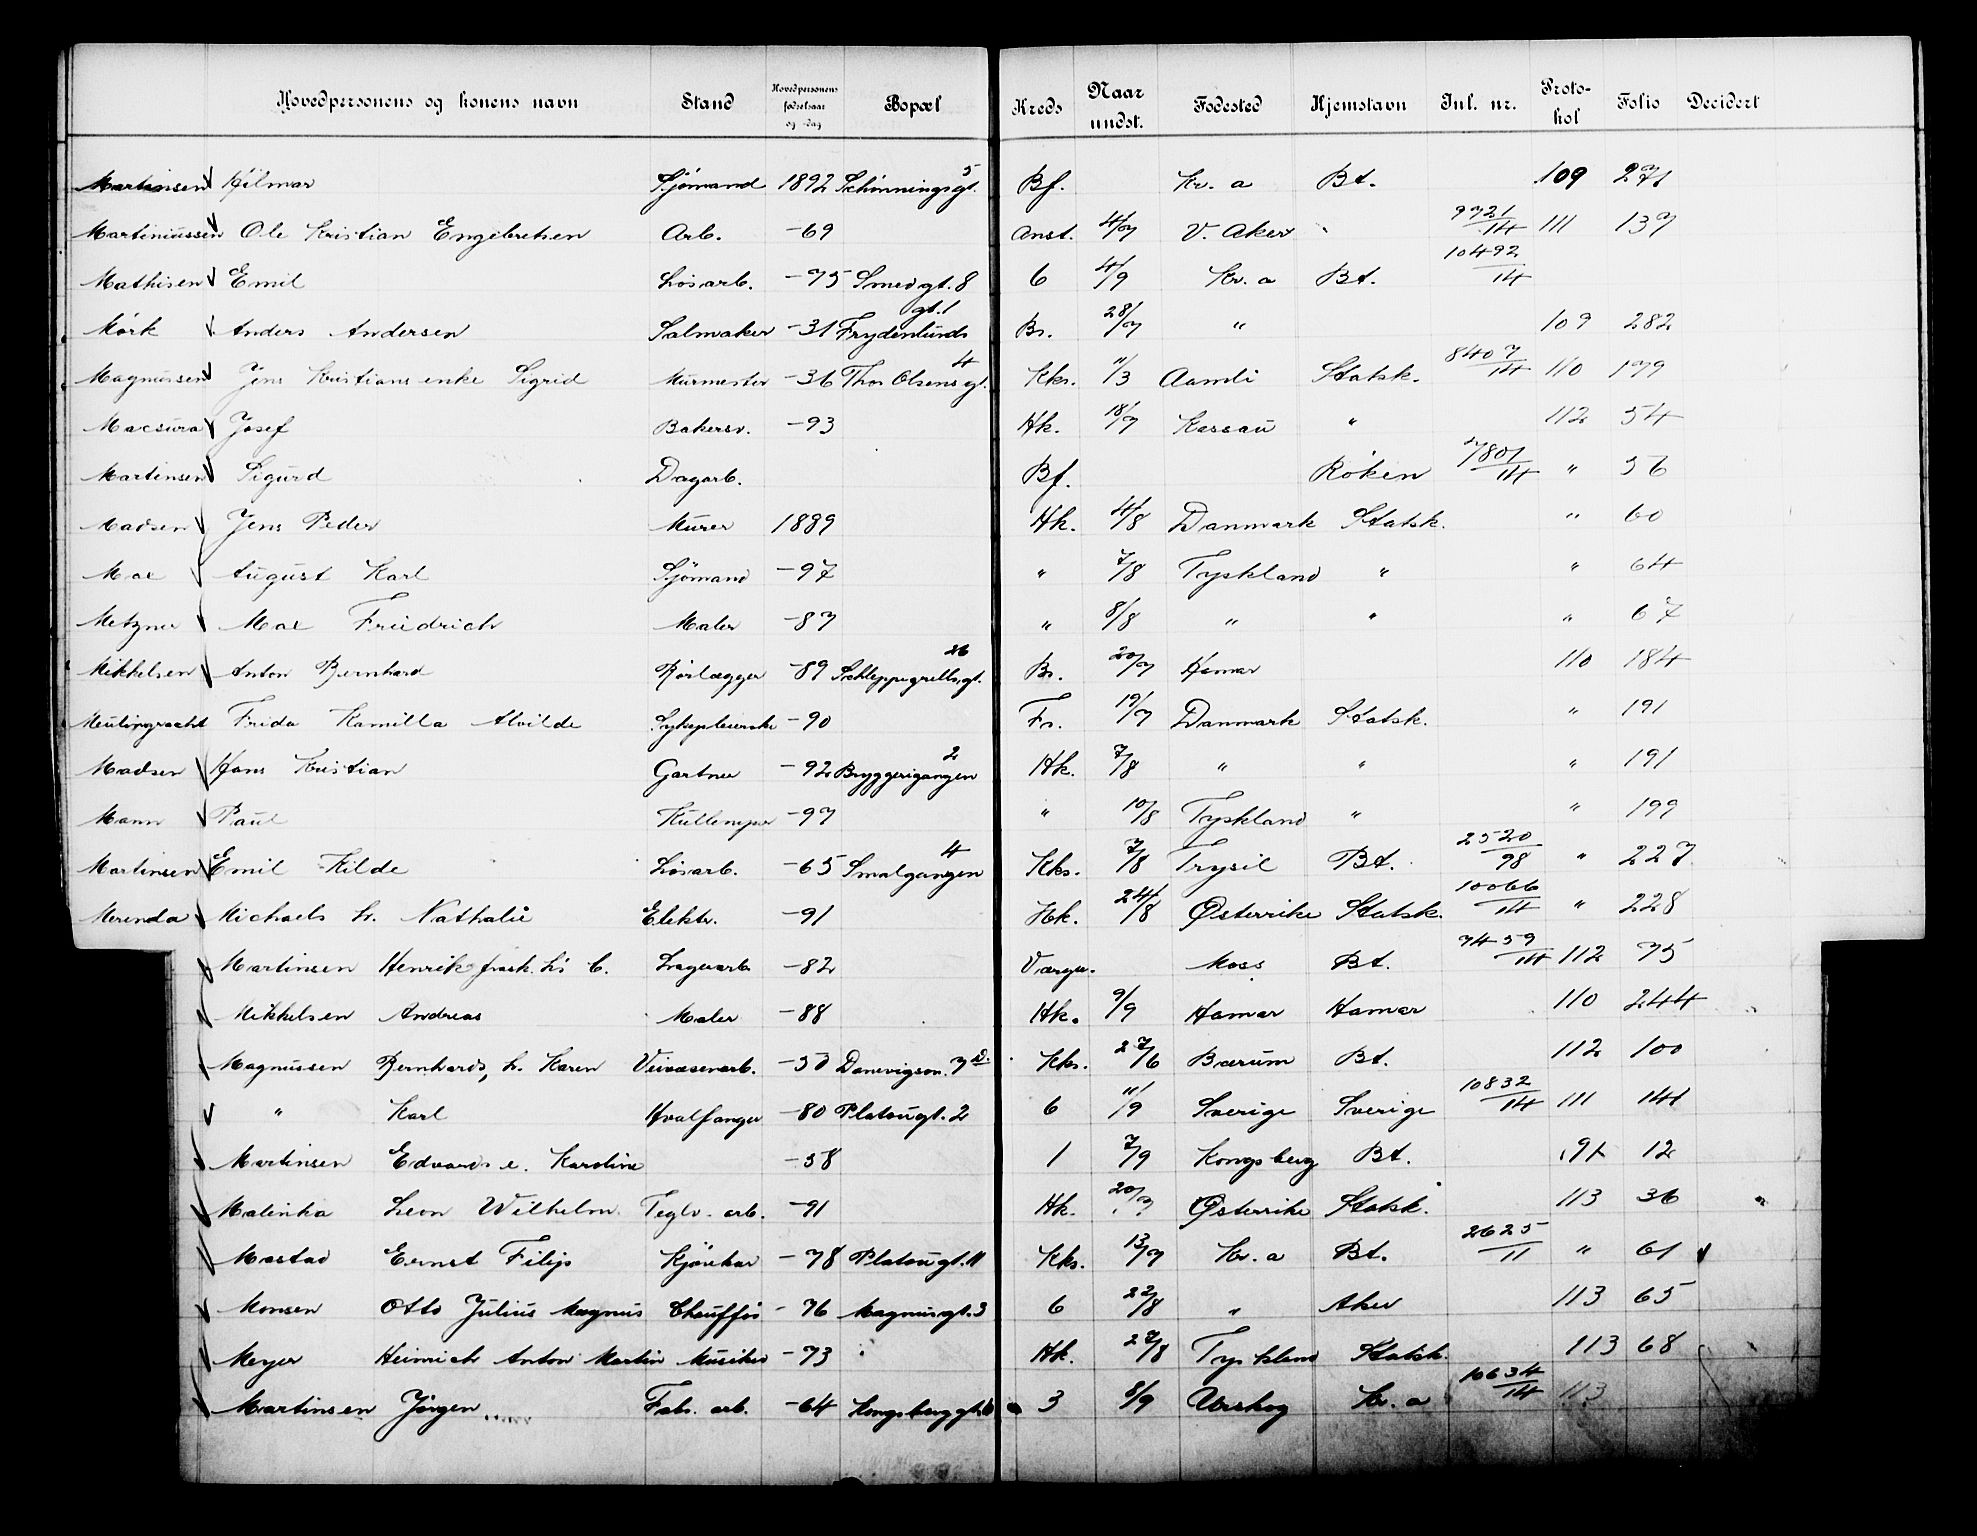 Hovedpersonens og konens navn Stand Hovedpersonens fødselsaar og -dag Bopæl Kreds Naar undst. Fødested Hjemstavn Jnl. nr. Proto-kol Folio Decidert
Martinsen Hilmar Sjömand 1892 Schönningsgt. 5 Bf. Kr. a Bt. 109 271
Martiniussen Ole Kristian Engebretsen Arb. -69 Anst. 4/7 V. Aker 9721/14 111 137
Mathisen Emil Løsarb. -75 Smedgt. 8 6 4/9 Kr. a Bt. 10492/14
Mörk Anders Andersen Salmaker -31 Frydenlunds gt. 1 Br. 28/7 " 109 282
Magnussen Jens Kristians enke Sigrid Murmester -36 Thos Olsens gt. 4 Kks. 11/3 Aamli Statsk. 8407/14 110 179
Macsura Josef Bakersv. -93 Hk. 18/7 Kassau " 112 54
Martinsen Sigurd Dagarb. Bf. Röken 7801/14 " 56
Madsen Jens Peder Murer 1889 Hk. 4/8 Danmark Statsk. " 60
Max August Karl Sjömand -97 " 7/8 Tyskland " " 64
Metzner Max Friedrich Maler -87 " 8/8 " " " 67
Mikkelsen Anton Bernhard Rörlægger -89 Schleppegrellsgt. 26 Br. 20/7 Hamar 110 184
Meulingracht Frida Kamilla Alvilde Sykepleierske -90 Fr. 19/7 Danmark Statsk. " 191
Madsen Hans Kristian Gartner -92 Bryggerigangen 2 Hk. 7/8 " " " 191
Mann Paul Kullemper -97 " 10/8 Tyskland " " 199
Martinsen Emil Kilde Løsarb. -65 Smalgangen 4 Kks. 7/8 Trysil Bt. 2520/98 " 227
Merenda Michaels h. Nathalie Elektr. -91 Hk. 24/8 Østerrike Statsk. 10066/14 " 228
Martinsen Henrik frask. h. C. Lagerarb. -82 Værger. Moss Bt. 7459/14 112 75
Mikkelsen Andreas Maler -88 Hk. 9/9 Hamar Hamar 110 244
Magnussen Bernhards, h. Karen Veivæsenarb. -53 Danevigsvn. 7 D. Kks. 27/6 Bærum Bt. 112 100
" Karl Hvalfanger -80 Platougt. 2 6 11/9 Sverige Sverige 10832/14 111 141
Martinsen Edvards e. Karoline -58 1 7/9 Kongsberg Bt. 91 12
Malinka Leon Wilhelm Teglv. arb. -91 Hk. 20/7 Østerrike Statsk. 113 36
Mastad Ernst Filip Kjörekar -78 Platougt. 11 Kks. 13/7 Kr. a Bt. 2625/11 " 61
Monsen Otto Julius Magnus Chauffør -76 Magnusgt. 3 6 22/8 " Aker 113 65
Meyer Heinrich Anton Martin Musiker -73 Hk. 27/8 Tyskland Statsk. 113 68
Martinsen Jörgen Fabr. arb. -64 Kongsberggt. 3 8/9 Urskog Kr. a 10634/14 113